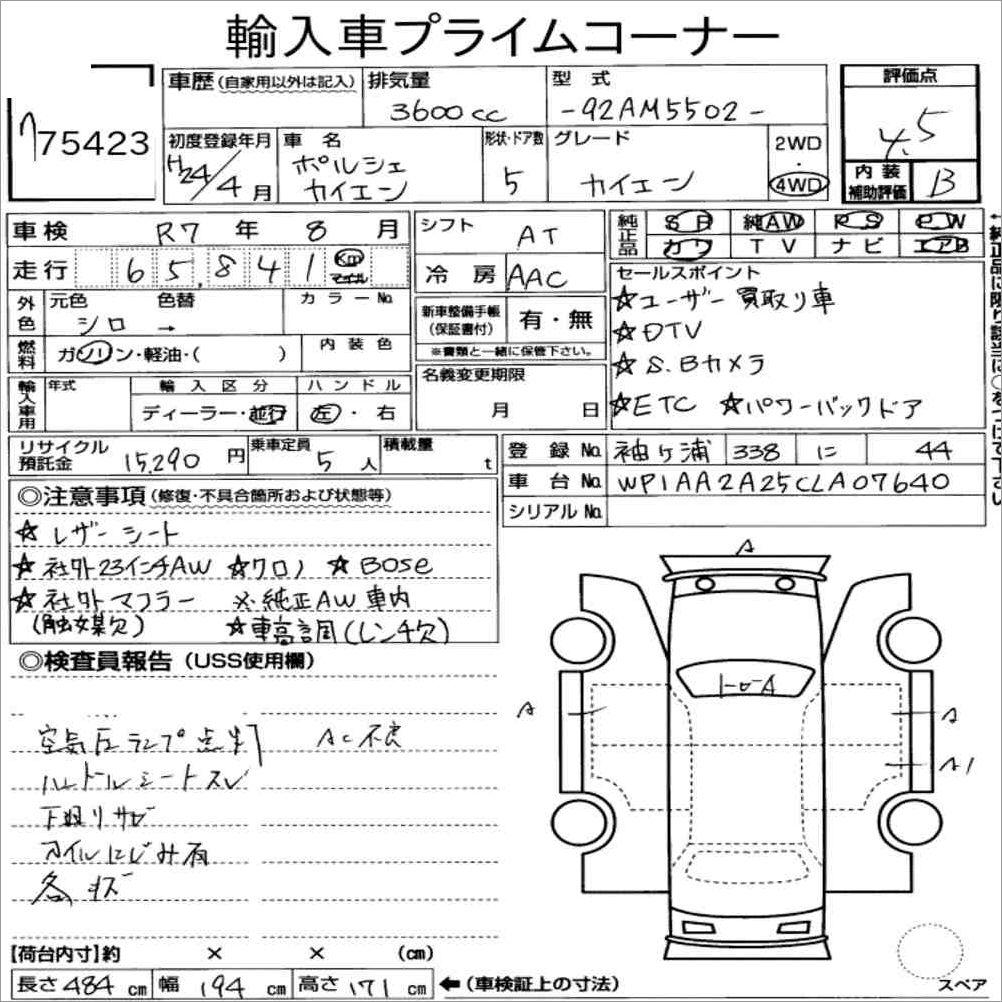 輸入車プライムコーナー
75423
車歴 (自家用以外は記入)
排気量 3600cc
型式 -92AM5502-
評価点 4.5
初度登録年月 H24/4月
車名 ポルシェ カイエン
形状・ドア数 5
グレード カイエン
2WD・4WD
内装補助評価 B
車検 R7年 8月
シフト AT
純正品 SR 純AW PS PW
カワ TV ナビ エアB
走行 65,841 Km マイル
冷房 AAC
外色 元色 シロ 色替 → カラーNo.
新車整備手帳(保証書付) 有・無
※書類と一緒に保管下さい。
燃料 ガソリン・軽油・( ) 内装色
名義変更期限 月 日
輸入車用 年式 輸入区分 ディーラー・並行 ハンドル 左・右
セールスポイント
☆ユーザー買取り車
☆DTV
☆S.Bカメラ
☆ETC ☆パワーバックドア
リサイクル預託金 15,290円
乗車定員 5人
積載量 t
登録No. 袖ヶ浦 338 に 44
車台No. WP1AA2A25CLA07640
シリアルNo.
◎注意事項(修復・不具合箇所および状態等)
☆レザーシート
☆社外23インチAW ☆クロノ ☆BOSE
☆社外マフラー ※純正AW車内
(触媒欠) ☆車高調(レンチ欠)
◎検査員報告(USS使用欄)
空気圧ランプ点灯 AC不良
ハンドルシートスレ
下廻りサビ
オイルにじみ有
各キズ
A
トロA
A
A
A1
【荷台内寸】約 × × (cm)
長さ484cm 幅194cm 高さ171cm ←(車検証上の寸法)
スペア